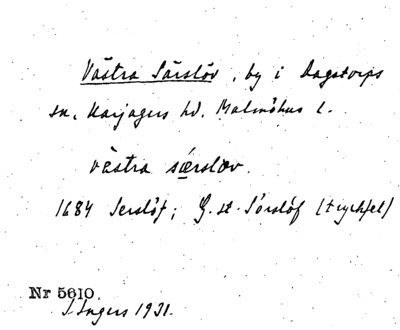 Västra Särslöv, by i Dagstorps
sn, Harjagers hd. Malmöhus l.
västra særslœv.
1684 Serslöf; G. st. Sörslöf (tryckfel)
Nr 5610.
I. Ingers 1931.